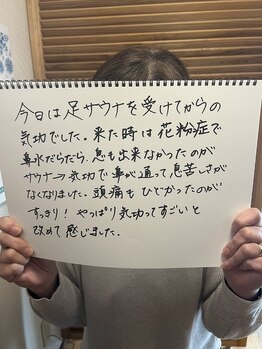 今日は足サウナを受けてからの
気功でした。来た時は花粉症で
鼻水だらだら、息も出来なかったのが
サウナ→気功で鼻が通って息苦しさが
なくなりました。頭痛もひどかったのが
すっきり！やっぱり気功ってすごいと
改めて感じました。